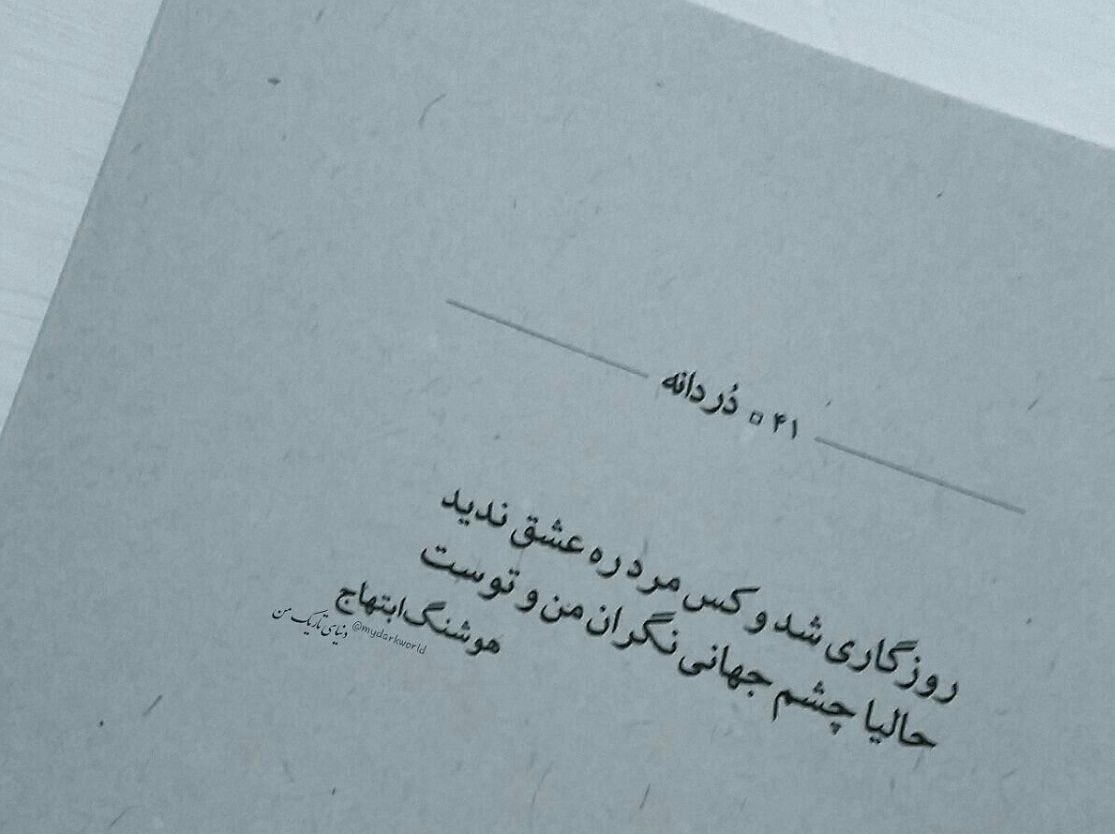 ۴۱ □ دُردانه
روزگاری شد و کس مرد ره عشق ندید
حالیا چشم جهانی نگران من و توست
هوشنگ ابتهاج
@mydarkworld دنیای تاریک من